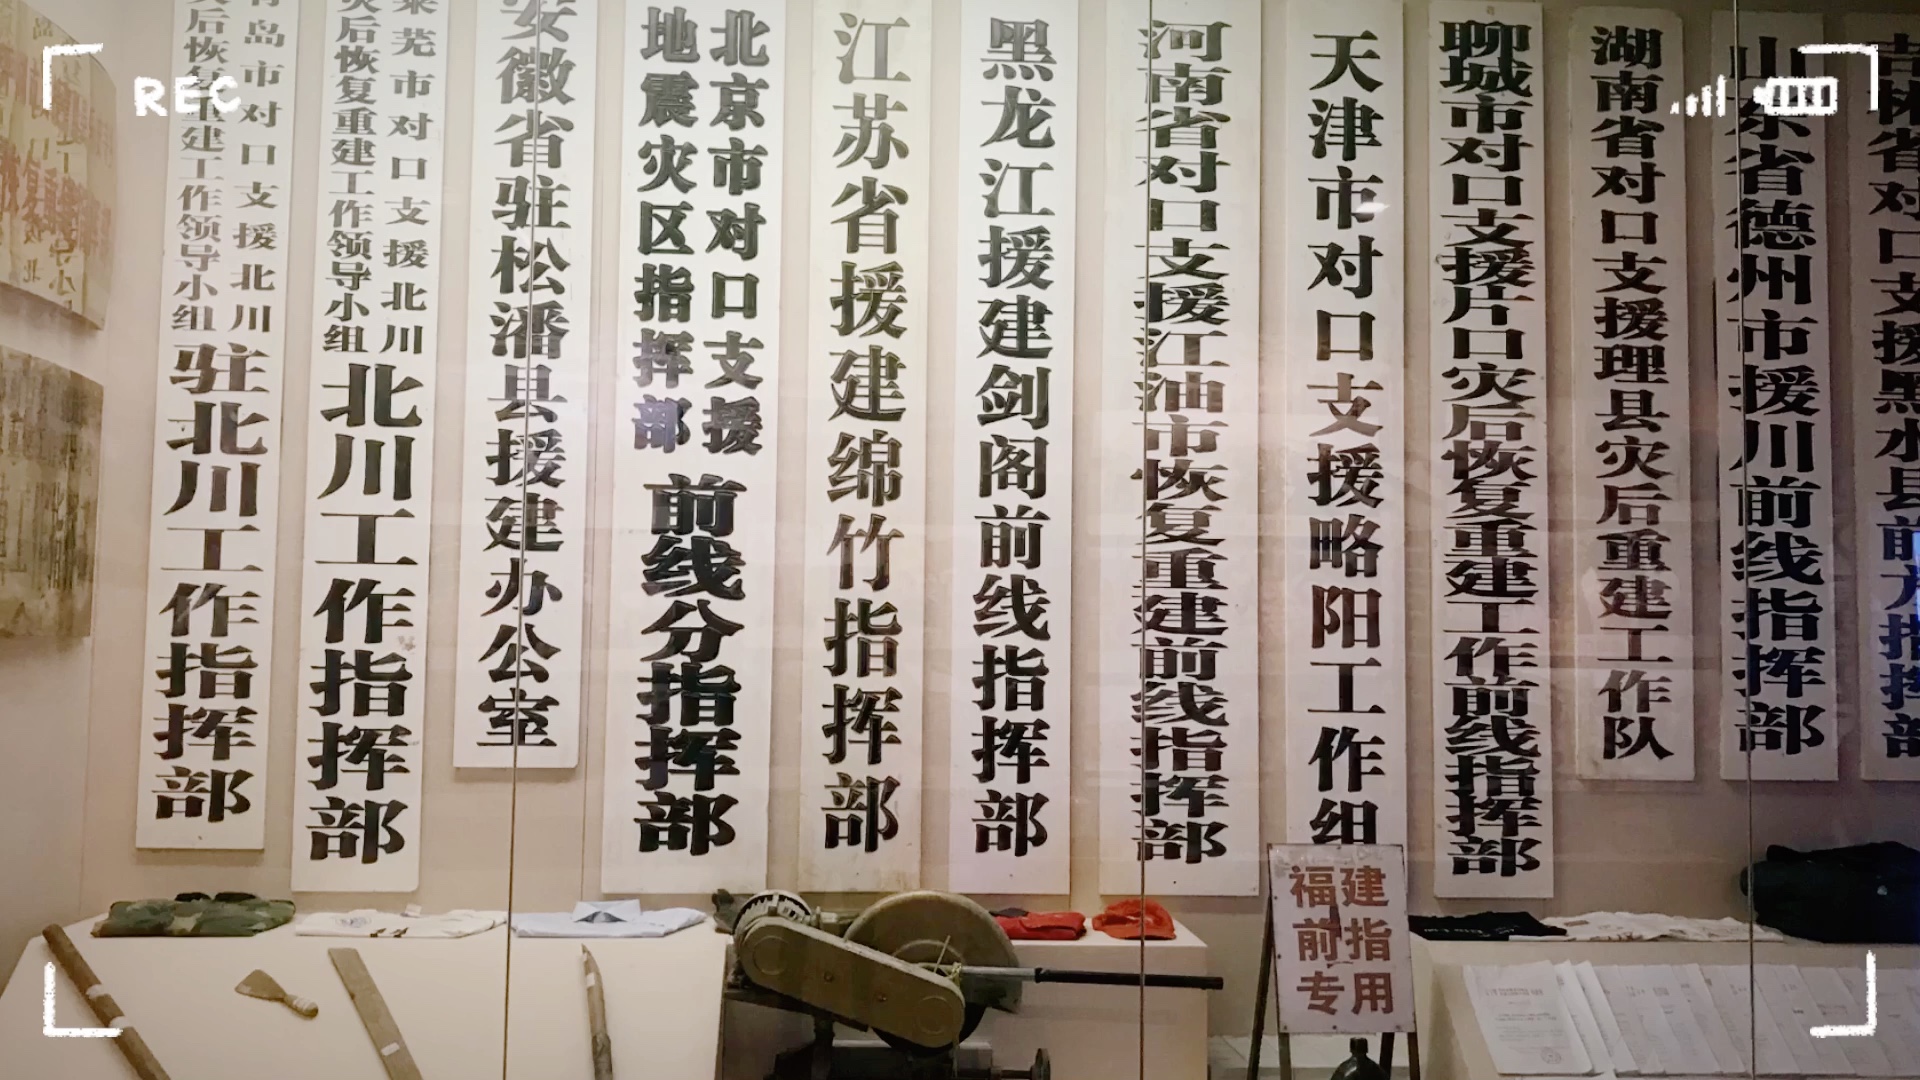 REC
青岛市对口支援北川
灾后恢复重建工作领导小组
驻北川工作指挥部
莱芜市对口支援北川
灾后恢复重建工作领导小组
北川工作指挥部
安徽省驻松潘县援建办公室
北京市对口支援
地震灾区指挥部
前线分指挥部
江苏省援建绵竹指挥部
黑龙江援建剑阁前线指挥部
河南省对口支援江油市恢复重建前线指挥部
天津市对口支援略阳工作组
聊城市对口支援片口灾后恢复重建工作前线指挥部
湖南省对口支援理县灾后重建工作队
山东省德州市援川前线指挥部
吉林省对口支援黑水县前方指挥部
福建
前指
专用